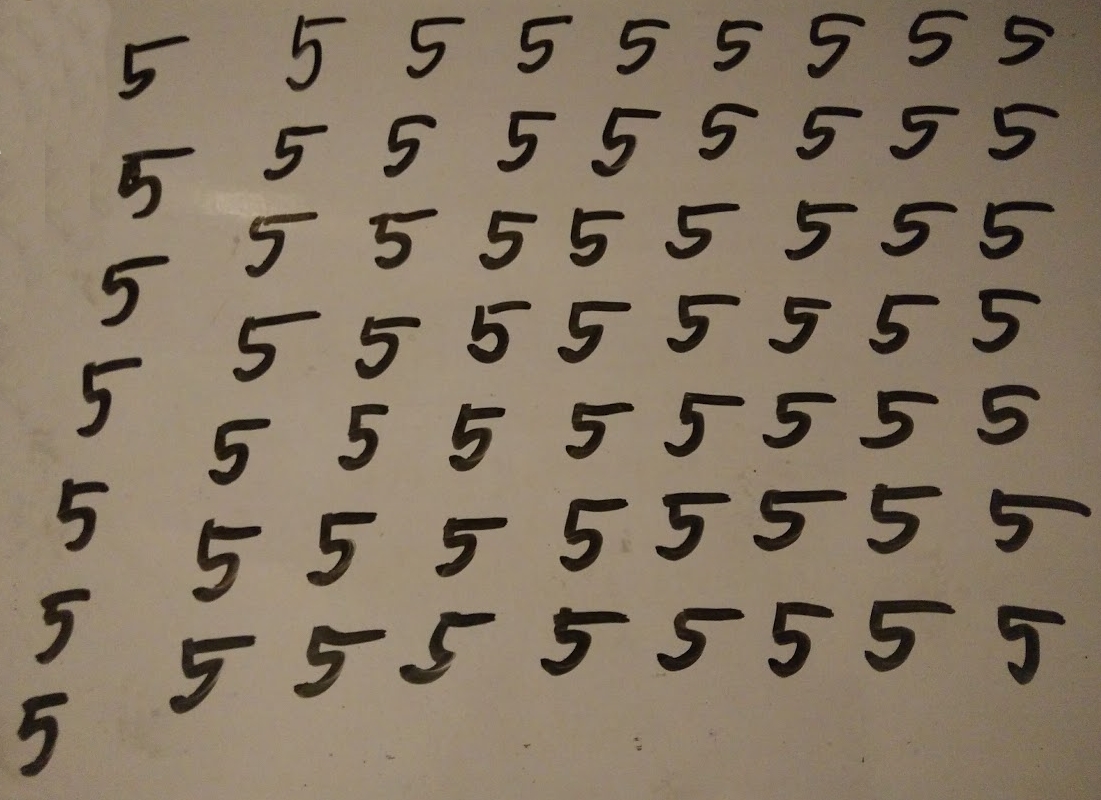 5 5 5 5 5 5 5 5 5
5 5 5 5 5 5 5 5 5
5 5 5 5 5 5 5 5 5
5 5 5 5 5 5 5 5 5
5 5 5 5 5 5 5 5 5
5 5 5 5 5 5 5 5 5
5 5 5 5 5 5 5 5 5